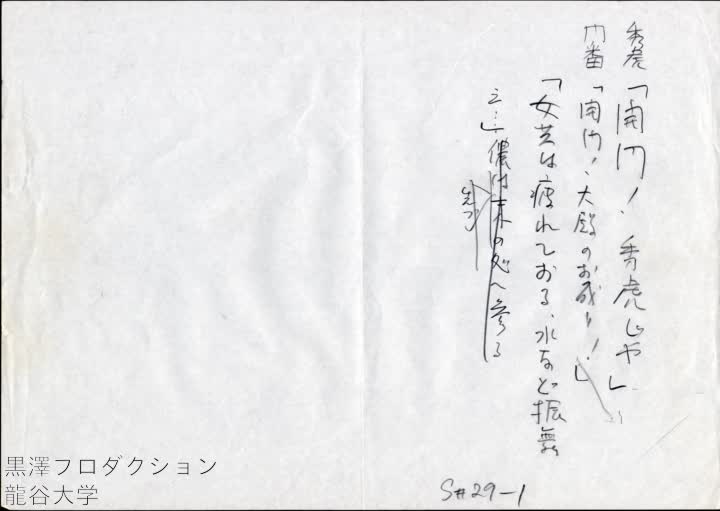 秀虎「開門！、秀虎じゃ」
門番「開門！、大殿のお成り！」
「女共は疲れておる、水など振舞
え…」儂は末の処へ参る
先づ
S#29-1
黒澤プロダクション
龍谷大学